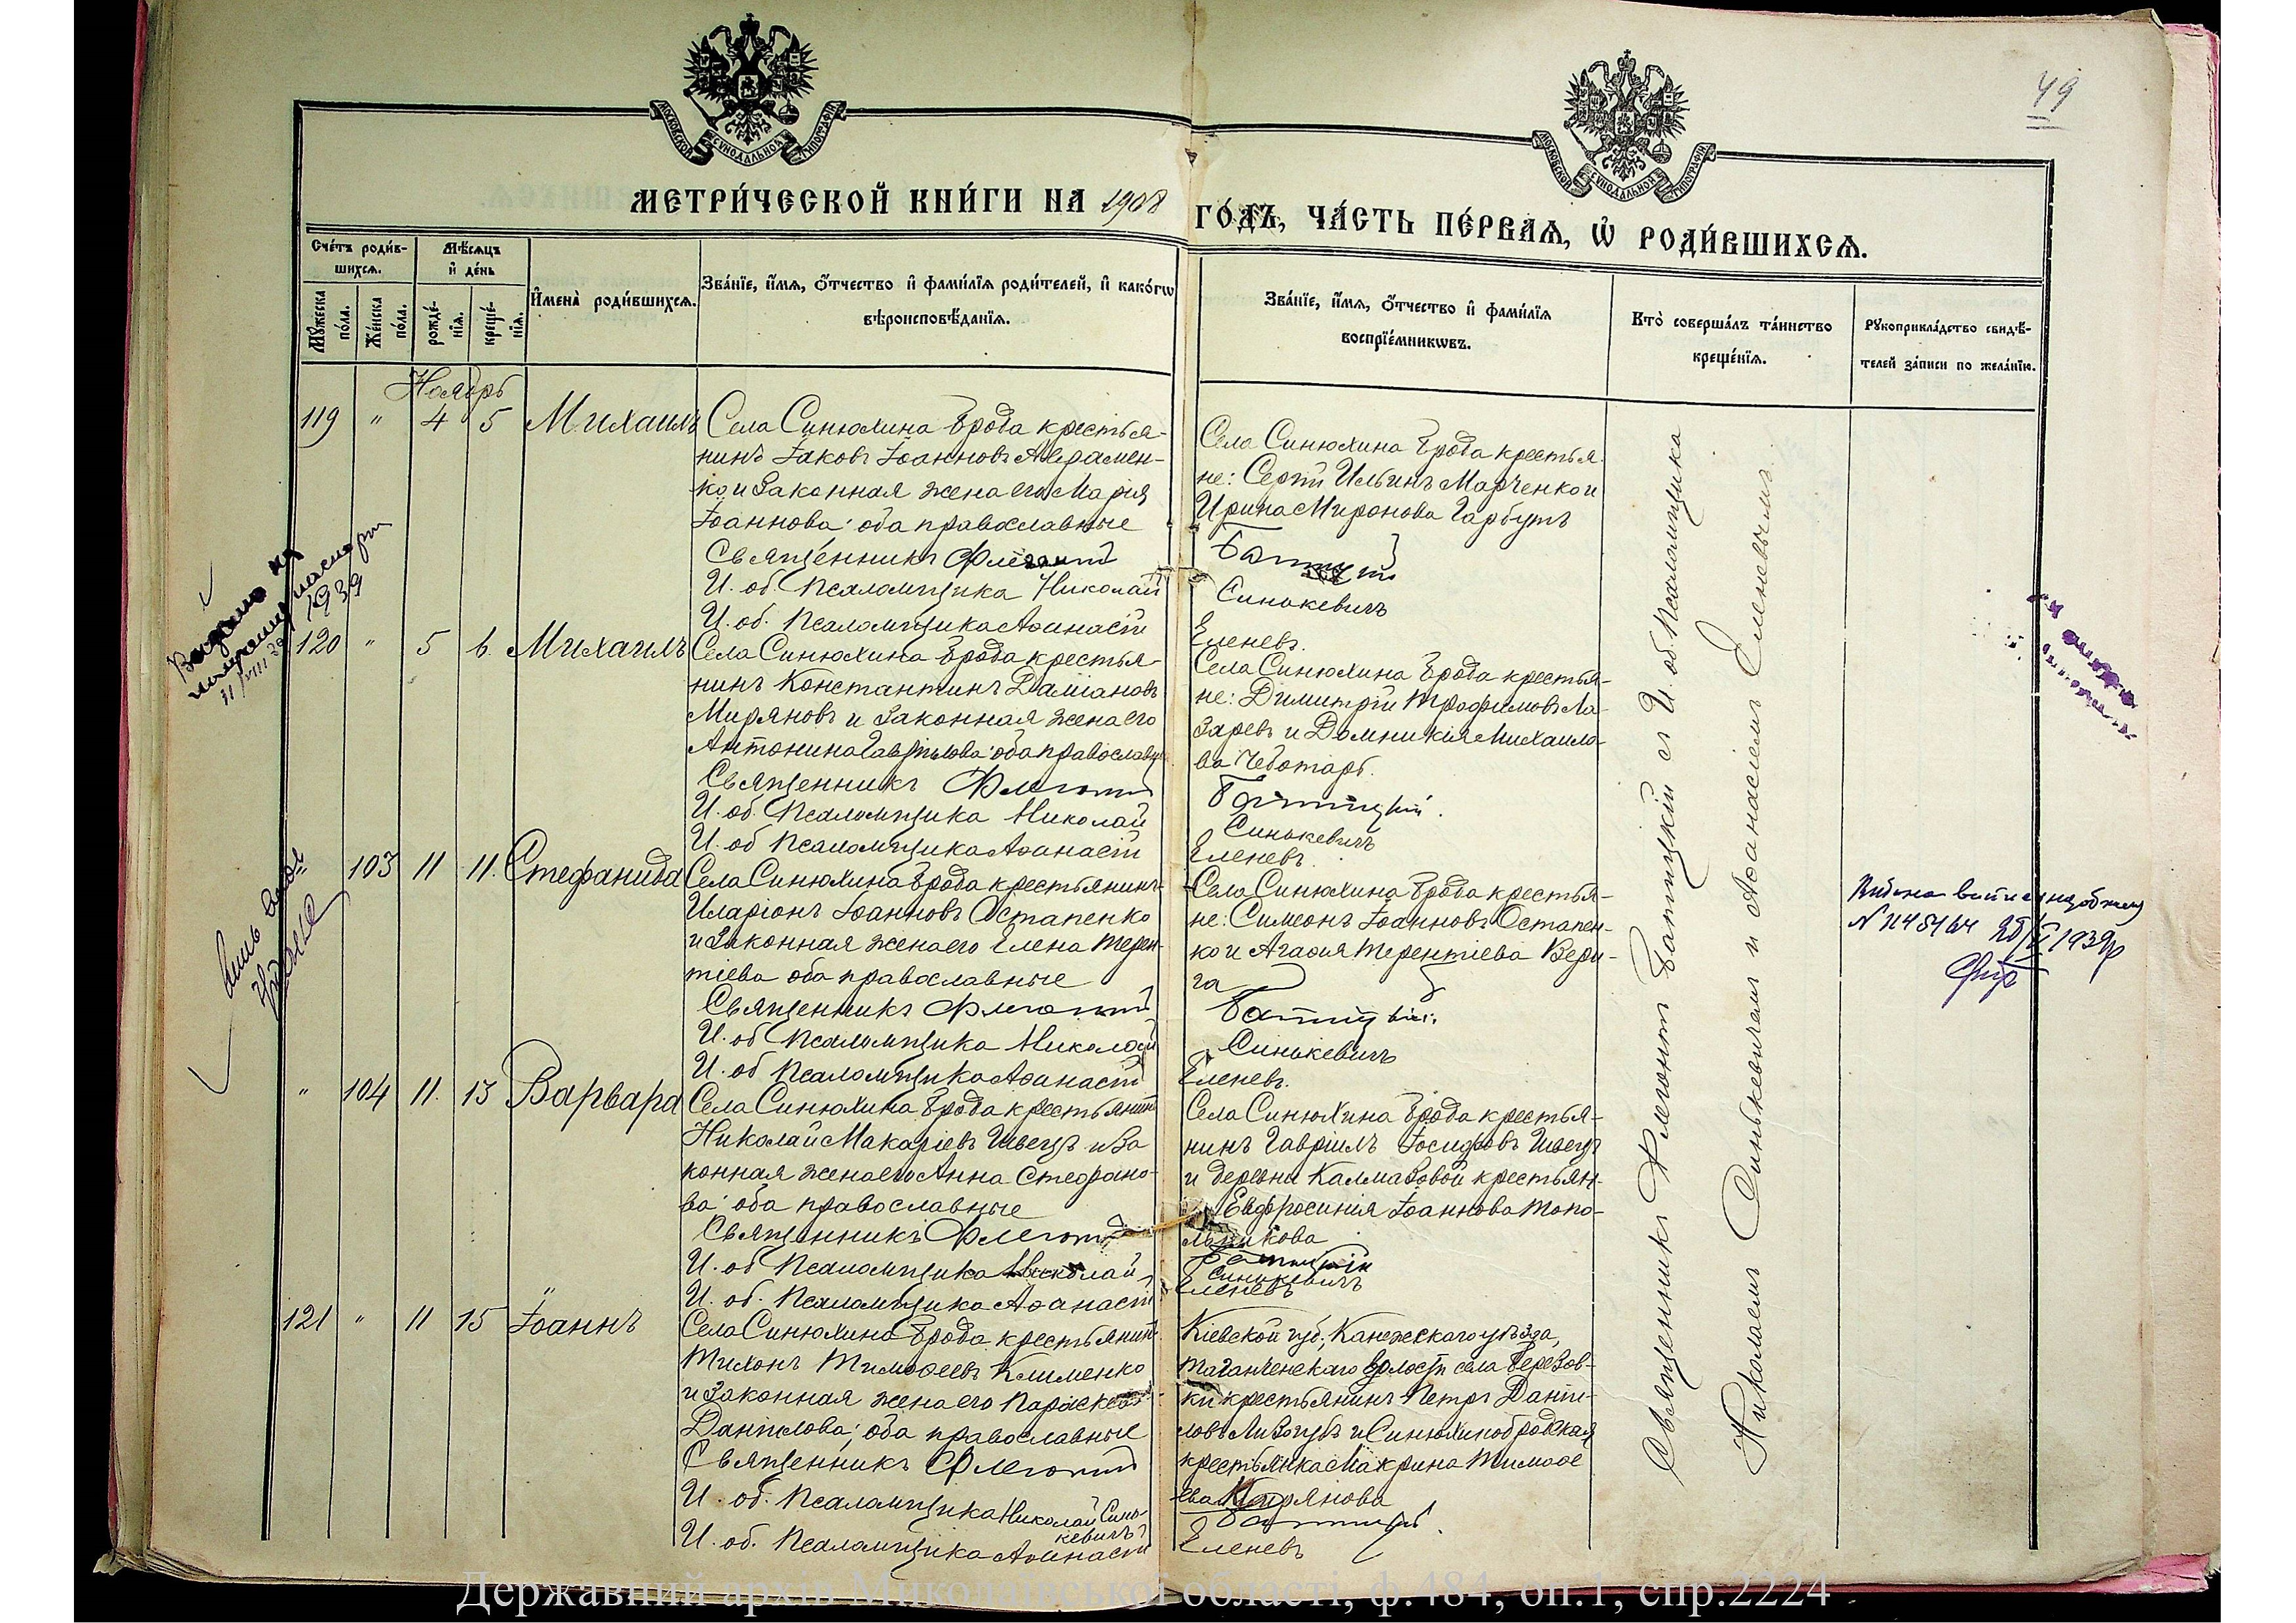 49
МОСКОВСКОЙ СѴНОДАЛЬНОЙ ТИПОГРАФІИ
МОСКОВСКОЙ СѴНОДАЛЬНОЙ ТИПОГРАФІИ
МЕТРИ́ЧЕСКОЙ КНИ́ГИ НА 1908 ГО́ДЪ, ЧА́СТЬ ПЕ́РВАѦ, Ѡ҆ РОДИ́ВШИХСѦ.
Сче́тъ роди́в-
шихсѧ.
Мѣ́сѧцъ
и҆ де́нь
Мꙋ́жеска
по́ла.
Же́нска
по́ла.
рожде́-
нїѧ.
креще́-
нїѧ.
И҆мена̀ роди́вшихсѧ.
Зва́нїе, и҆́мѧ, ѻ҆́тчество и҆ фами́лїѧ роди́телей, и҆ како́гѡ
вѣроисповѣ́данїѧ.
Зва́нїе, и҆́мѧ, ѻ҆́тчество и҆ фами́лїѧ
воспрїе́мникѡвъ.
Кто̀ соверша́лъ та́инство
креще́нїѧ.
Рꙋкоприкла́дство свидѣ́-
телей за́писи по жела́нїю.
Ноябрь
119 " 4 5 Михаилъ
Села Синюхина Брода крестья-
нинъ Іаковъ Іоанновъ Аврамен-
ко и законная жена его Марія
Іоаннова: оба православные
Священникъ Флегонтъ
И. об. Псаломщика Николай
И. об. Псаломщика Аѳанасій
Села Синюхина Брода крестья-
не: Сергій Ильинъ Марченко и
Ирина Миронова Гарбузъ
Батицкій
Синькевичъ
Еленевъ.
1939
120 " 5 6. Михаилъ
Села Синюхина Брода крестья-
нинъ Константинъ Даміановъ
Миряновъ и законная жена его
Антонина Гавріилова: оба православны
Священникъ Флегонтъ
И. об. Псаломщика Николай
И. об Псаломщика Аѳанасій
Села Синюхина Брода крестья-
не: Димитрій Трофимовъ Ла-
заревъ и Домникія Михаило-
ва Чеботарь.
Батицкій.
Синькевичъ
Еленевъ.
103 11 11. Стефанида
Села Синюхина Брода крестьянинъ
Иларіонъ Іоанновъ Остапенко
и законная жена его Елена Терен-
тіева оба православные
Священникъ Флегонтъ
И. об Псаломщика Николай
И. об Псаломщика Аѳанасій
Села Синюхина Брода крестья-
не: Симеонъ Іоанновъ Остапен-
ко и Агаѳія Терентіева Вери-
га
Батицкій.
Синькевичъ
Еленевъ.
1939р
" 104 11. 13 Варвара
Села Синюхина Брода крестьянинъ
Николай Макаріевъ Швецъ и за
конная жена его Анна Стефано-
ва: оба православные
Священникъ Флегонтъ
И. об Псаломщика Николай
И. об. Псаломщика Аѳанасій
Села Синюхина Брода крестья-
нинъ Гавріилъ Іосифовъ Швецъ
и деревни Калмазовой крестьян-
Евфросинія Іоаннова Топо-
льникова
Батицкій
Синькевичъ
Еленевъ
121 " 11 15 Іоаннъ
Села Синюхина Брода крестьянинъ
Тихонъ Тимоѳеевъ Клименко
и законная жена его Параскева
Даніилова; оба православные
Священникъ Флегонтъ
И. об. Псаломщика Николай Синь-
кевичъ
И. об. Псаломщика Аѳанасій
Кіевской губ; Каневскаго уѣзда,
Таганченскаго волости села Березов-
ки крестьянинъ Петръ Даніи-
ловъ Лизогубъ и Синюхинобродская
крестьянка Макрина Тимоѳе
ева
Батицкій.
Еленевъ
Священникъ Флегонтъ Батицкій съ И. об. Псаломщика
Николаемъ Синькевичемъ и Аѳанасіемъ Еленевымъ.
Державний архів Миколаївської області, ф.484, оп.1, спр.2224